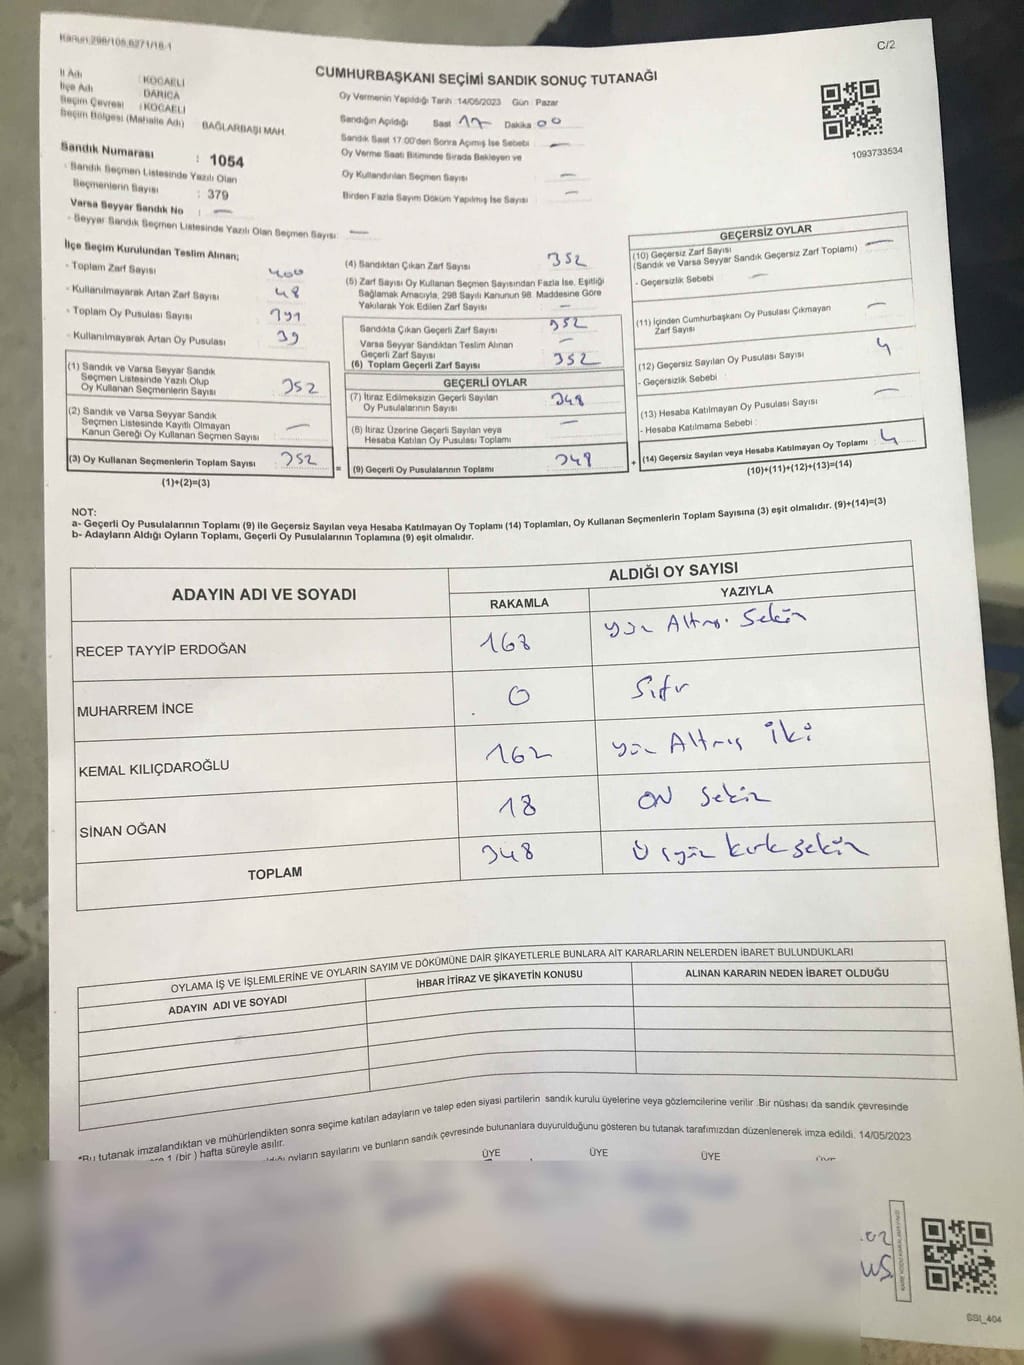 Kanun:298/105,6271/18-1
C/2
CUMHURBAŞKANI SEÇİMİ SANDIK SONUÇ TUTANAĞI
İl Adı : KOCAELİ
İlçe Adı : DARICA
Seçim Çevresi : KOCAELİ
Seçim Bölgesi (Mahalle Adı) BAĞLARBAŞI MAH.
Sandık Numarası : 1054
- Sandık Seçmen Listesinde Yazılı Olan
Seçmenlerin Sayısı : 379
Varsa Seyyar Sandık No : —
- Seyyar Sandık Seçmen Listesinde Yazılı Olan Seçmen Sayısı: —
Oy Vermenin Yapıldığı Tarih :14/05/2023 Gün : Pazar
Sandığın Açıldığı Saat 17 Dakika 00
Sandık Saat 17:00'den Sonra Açımış İse Sebebi : —
Oy Verme Saati Bitiminde Sırada Bekleyen ve
Oy Kullandırılan Seçmen Sayısı —
Birden Fazla Sayım Döküm Yapılmış İse Sayısı —
1093733534
İlçe Seçim Kurulundan Teslim Alınan;
- Toplam Zarf Sayısı 400
- Kullanılmayarak Artan Zarf Sayısı 48
- Toplam Oy Pusulası Sayısı 391
- Kullanılmayarak Artan Oy Pusulası 39
(1) Sandık ve Varsa Seyyar Sandık
Seçmen Listesinde Yazılı Olup
Oy Kullanan Seçmenlerin Sayısı 352
(2) Sandık ve Varsa Seyyar Sandık
Seçmen Listesinde Kayıtlı Olmayan
Kanun Gereği Oy Kullanan Seçmen Sayısı —
(3) Oy Kullanan Seçmenlerin Toplam Sayısı 352
(1)+(2)=(3)
=
(4) Sandıktan Çıkan Zarf Sayısı 352
(5) Zarf Sayısı Oy Kullanan Seçmen Sayısından Fazla İse, Eşitliği
Sağlamak Amacıyla, 298 Sayılı Kanunun 98. Maddesine Göre
Yakılarak Yok Edilen Zarf Sayısı —
Sandıkta Çıkan Geçerli Zarf Sayısı 352
Varsa Seyyar Sandıktan Teslim Alınan
Geçerli Zarf Sayısı —
(6) Toplam Geçerli Zarf Sayısı 352
GEÇERLİ OYLAR
(7) İtiraz Edilmeksizin Geçerli Sayılan
Oy Pusulalarının Sayısı 348
(8) İtiraz Üzerine Geçerli Sayılan veya
Hesaba Katılan Oy Pusulası Toplamı —
(9) Geçerli Oy Pusulalarının Toplamı 348
+
GEÇERSİZ OYLAR
(10) Geçersiz Zarf Sayısı
(Sandık ve Varsa Seyyar Sandık Geçersiz Zarf Toplamı) —
- Geçersizlik Sebebi : —
(11) İçinden Cumhurbaşkanı Oy Pusulası Çıkmayan
Zarf Sayısı —
(12) Geçersiz Sayılan Oy Pusulası Sayısı 4
- Geçersizlik Sebebi :
(13) Hesaba Katılmayan Oy Pusulası Sayısı —
- Hesaba Katılmama Sebebi :
(14) Geçersiz Sayılan veya Hesaba Katılmayan Oy Toplamı 4
(10)+(11)+(12)+(13)=(14)
NOT:
a- Geçerli Oy Pusulalarının Toplamı (9) ile Geçersiz Sayılan veya Hesaba Katılmayan Oy Toplamı (14) Toplamları, Oy Kullanan Seçmenlerin Toplam Sayısına (3) eşit olmalıdır. (9)+(14)=(3)
b- Adayların Aldığı Oyların Toplamı, Geçerli Oy Pusulalarının Toplamına (9) eşit olmalıdır.
ADAYIN ADI VE SOYADI
ALDIĞI OY SAYISI
RAKAMLA YAZIYLA
RECEP TAYYİP ERDOĞAN 168 yüz Altmış Sekiz
MUHARREM İNCE 0 Sıfır
KEMAL KILIÇDAROĞLU 162 yüz Altmış iki
SİNAN OĞAN 18 ON Sekiz
TOPLAM 348 Üçyüz kırksekiz
OYLAMA İŞ VE İŞLEMLERİNE VE OYLARIN SAYIM VE DÖKÜMÜNE DAİR ŞİKAYETLERLE BUNLARA AİT KARARLARIN NELERDEN İBARET BULUNDUKLARI
ADAYIN ADI VE SOYADI İHBAR İTİRAZ VE ŞİKAYETİN KONUSU ALINAN KARARIN NEDEN İBARET OLDUĞU
*Bu tutanak imzalandıktan ve mühürlendikten sonra seçime katılan adayların ve talep eden siyasi partilerin sandık kurulu üyelerine veya gözlemcilerine verilir .Bir nüshası da sandık çevresinde
1 (bir ) hafta süreyle asılır.
oyların sayılarını ve bunların sandık çevresinde bulunanlara duyurulduğunu gösteren bu tutanak tarafımızdan düzenlenerek imza edildi. 14/05/2023
ÜYE ÜYE ÜYE ÜYE
SSI_404